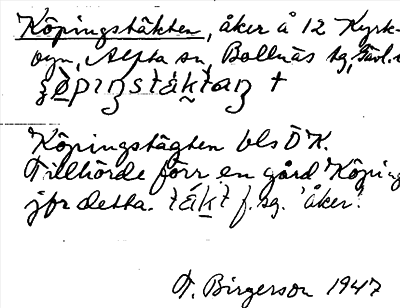 Köpingstäkten, åker å 12 Kyrk-
byn, Alfta sn, Bollnäs tg, Gävl. l
Köpingstägten bls Ö K.
Tillhörde förr en gård Köping
jfr detta. f. sg. 'åker'.
T. Birgerson 1947